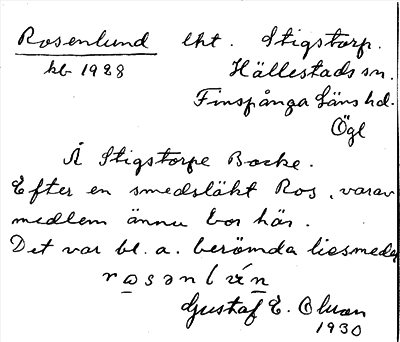 Rosenlund lht. Stigstorp.
kb 1928 Hällestads sn.
Finspånga läns hd.
Ögl
Å Stigstorps Backe.
Efter en smedsläkt Ros, varav
medlem ännu bor här.
Det var bl. a. berömda liesmeder
Gustaf E. Olson
1930